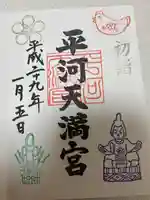 初詣
平河天満宮
平成二十九年
一月五日